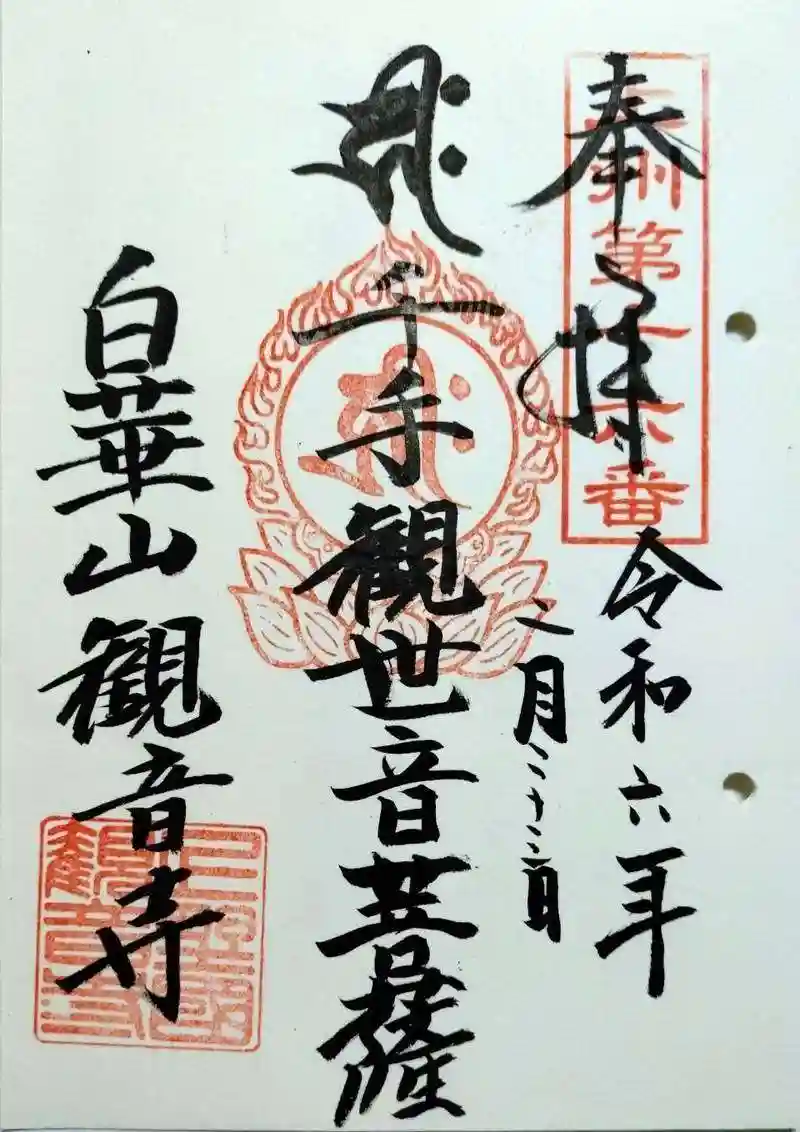 奉拝
令和六年
二月二十三日
千手観世音菩薩
白華山観音寺
第十六番